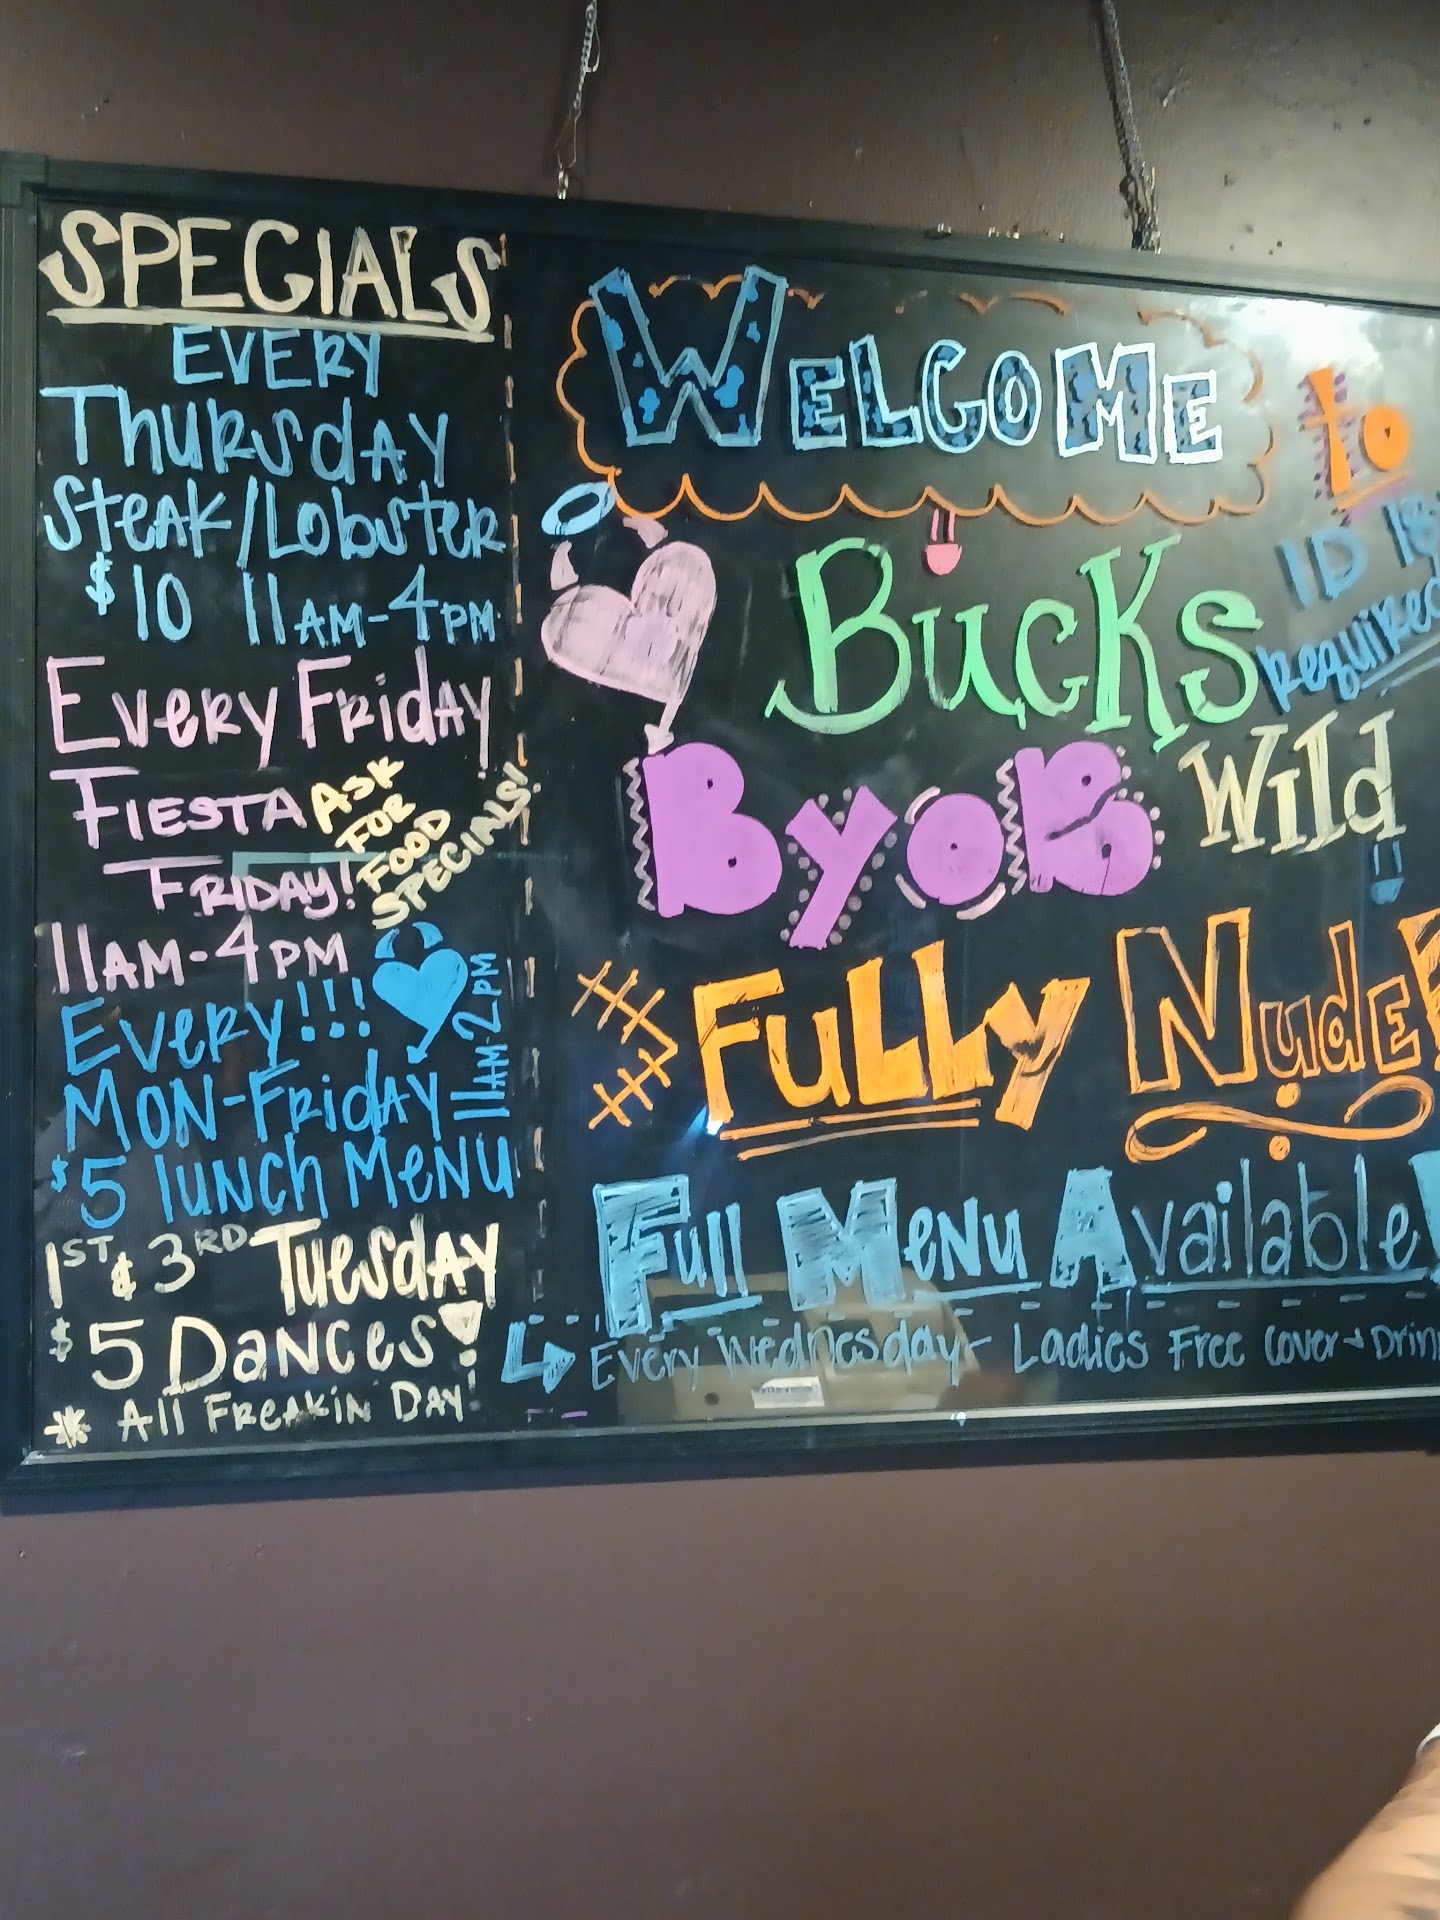 SPECIALS
EVERY
THURSDAY
STEAK/LOBSTER
$10 11AM-4PM
EVERY FRIDAY
FIESTA
FRIDAY!
ASK
FOR
FOOD
SPECINS!
11AM-4PM
EVERY!!!
MON-FRIDAY
11AM-2PM
$5 LUNCH MENU
1ST & 3RD TUESDAY
$5 DANCES!
* All FREAKIN DAY!
WELCOME
to
BUCKS
ID IS
REQUIRED
Wild
BYOB
FULLY NUDE
Full Menu Available!
Every Wednesday - Ladies Free Cover +